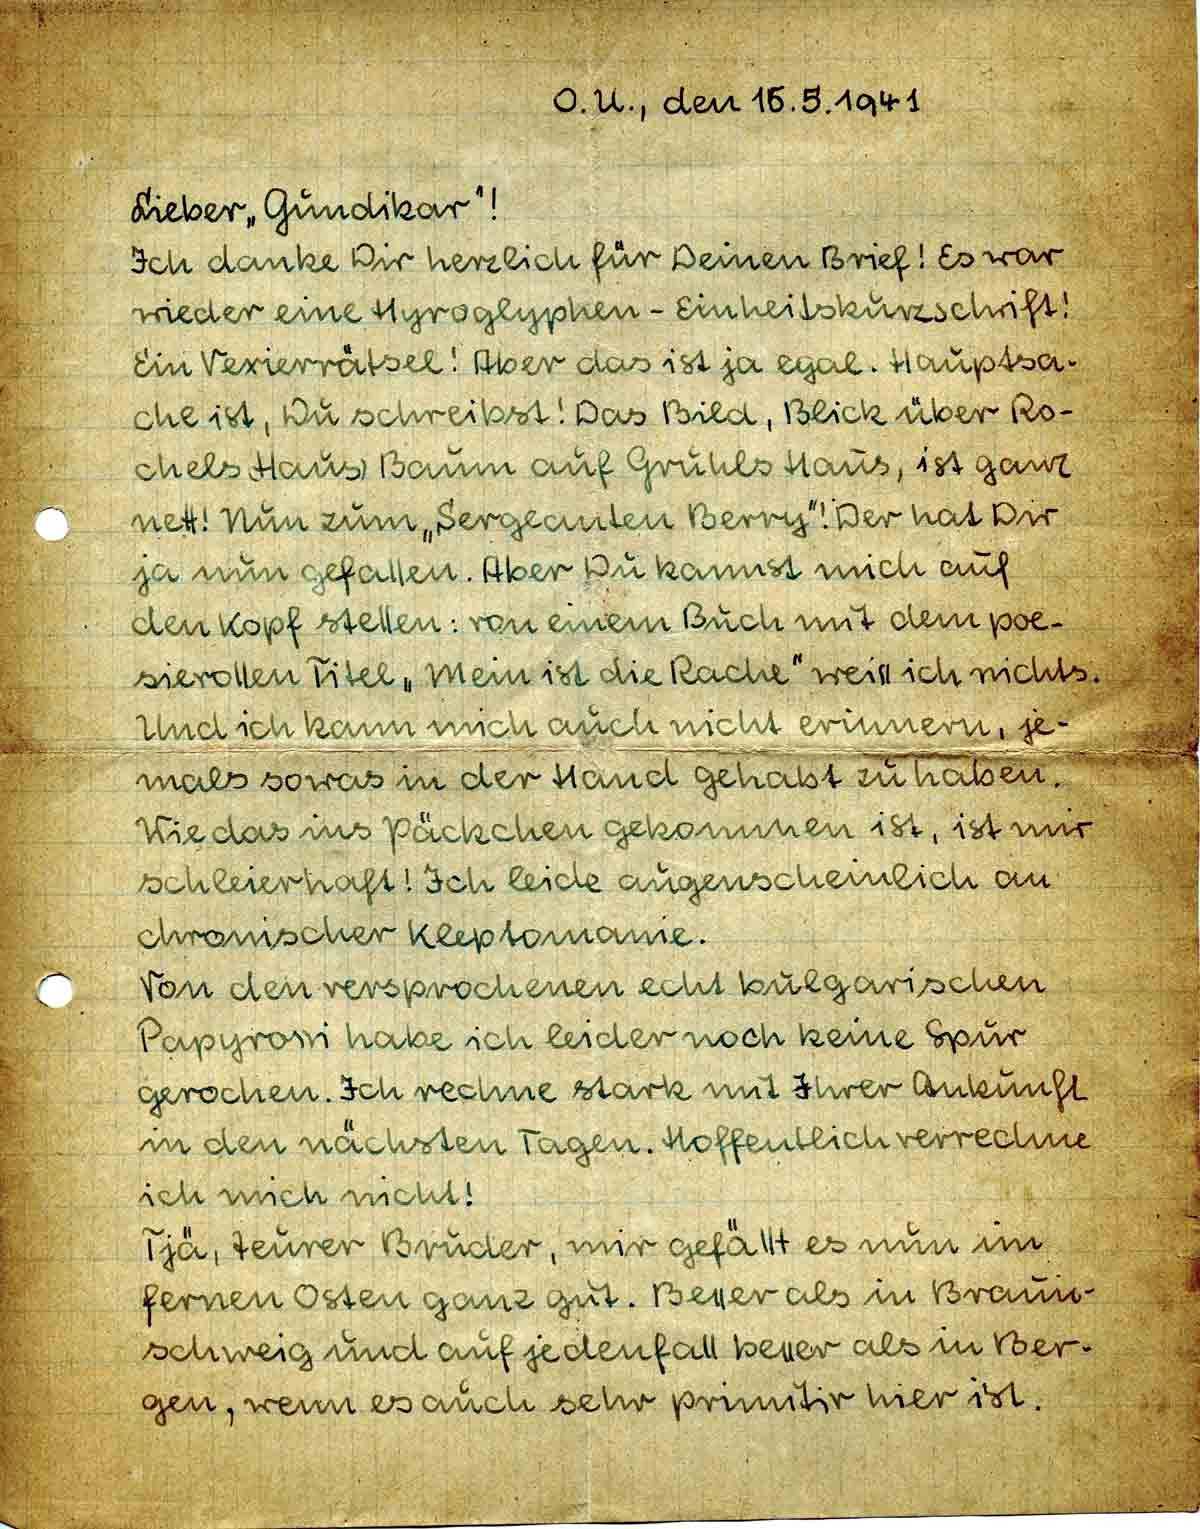 O.U., den 15.5.1941
Lieber „Gundikar“!
Ich danke Dir herzlich für Deinen Brief! Es war
wieder eine Hyroglyphen - Einheitskurzschrift!
Ein Vexierrätsel! Aber das ist ja egal. Hauptsa-
che ist, Du schreibst! Das Bild, Blick über Ro-
chels Haus, Baum auf Gruhls Haus, ist ganz
nett! Nun zum „Sergeanten Berry“! Der hat Dir
ja nun gefallen. Aber Du kannst mich auf
den Kopf stellen: von einem Buch mit dem poe-
sievollen Titel „Mein ist die Rache“ weiß ich nichts.
Und ich kann mich auch nicht erinnern, je-
mals sowas in der Hand gehabt zu haben.
Wie das ins Päckchen gekommen ist, ist mir
schleierhaft! Ich leide augenscheinlich an
chronischer Kleptomanie.
Von den versprochenen echt bulgarischen
Papyrossi habe ich leider noch keine Spur
gerochen. Ich rechne stark mit Ihrer Ankunft
in den nächsten Tagen. Hoffentlich verrechne
ich mich nicht!
Tjä, teurer Bruder, mir gefällt es nun im
fernen Osten ganz gut. Besser als in Braun-
schweig und auf jedenfall besser als in Ber-
gen, wenn es auch sehr primitiv hier ist.